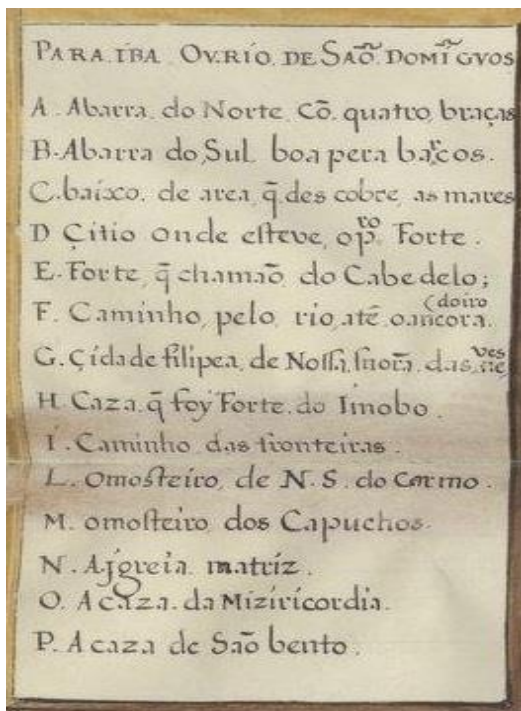 PARAIBA OV.RIO DE SAÕ DOMĨGVOS
A. Abarra do Norte Cõ quatro braças
B. Abarra do Sul boa pera barcos.
C. baixo de area q̃ des cobre as mares
D Çitio onde esteve op.ro Forte.
E. Forte, q̃ chamaõ do Cabedelo;
F. Caminho pelo rio até oancora(doiro.
G. Çidade filipea de Nossa snora das neves
H. Caza q̃ foy Forte do Imobo.
I. Caminho das fronteiras.
L. omosteiro de N.S. do Carmo.
M. omosteiro dos Capuchos.
N. Ajgreia matriz.
O. A caza da Miziricordia.
P. A caza de Saõ bento.